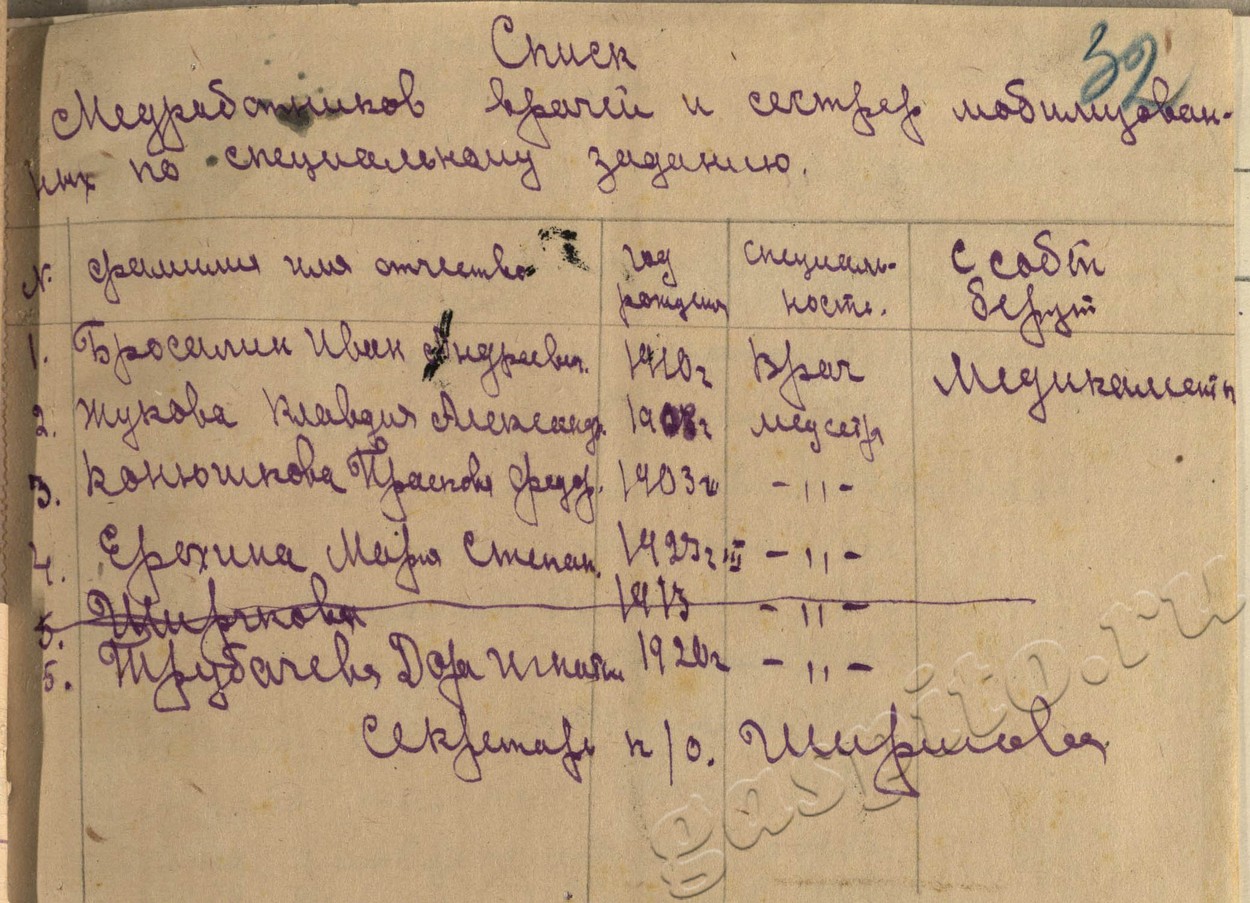 32
Список
Медработников врачей и сестер мобилизован-
ных по специальному заданию.
№ фамилия имя отчество год рождения специаль-ность. с собой берут
1. Бросалин Иван Андреевич. 1910г Врач Медикаменты
2. Жукова Клавдия Александр. 1908г медсестр
3. Конюшкова Прасковья Федор. 1903г - 11 -
4. Ерохина Мария Степан. 1923г. III - 11 -
5. 1913 - 11 -
5. Трубачева Дора Игнать. 1920г - 11 -
Секретарь п/о. Ширшова
gaspito.ru